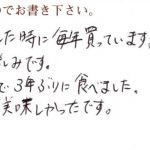 でお書き下さい。
した時に毎年買っています。
しみです。
で3年ぶりに食べました。
美味しかったです。